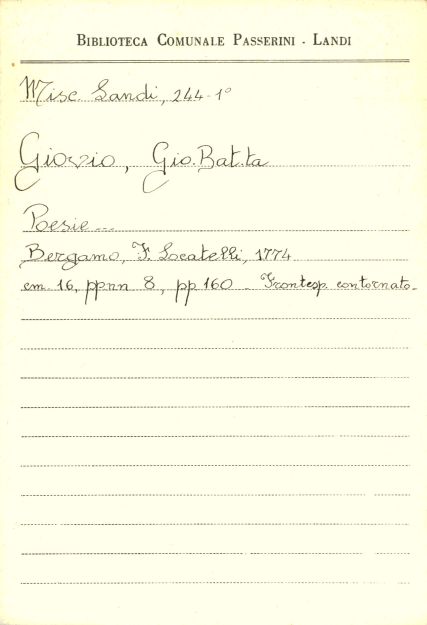 BIBLIOTECA COMUNALE PASSERINI - LANDI
Misc. Landi, 244-1°
Giovio, Gio.Bat.ta
Poesie...
Bergamo, F. Locatelli, 1774
cm. 16, ppnn 8, pp 160 - Frontesp. contornato.